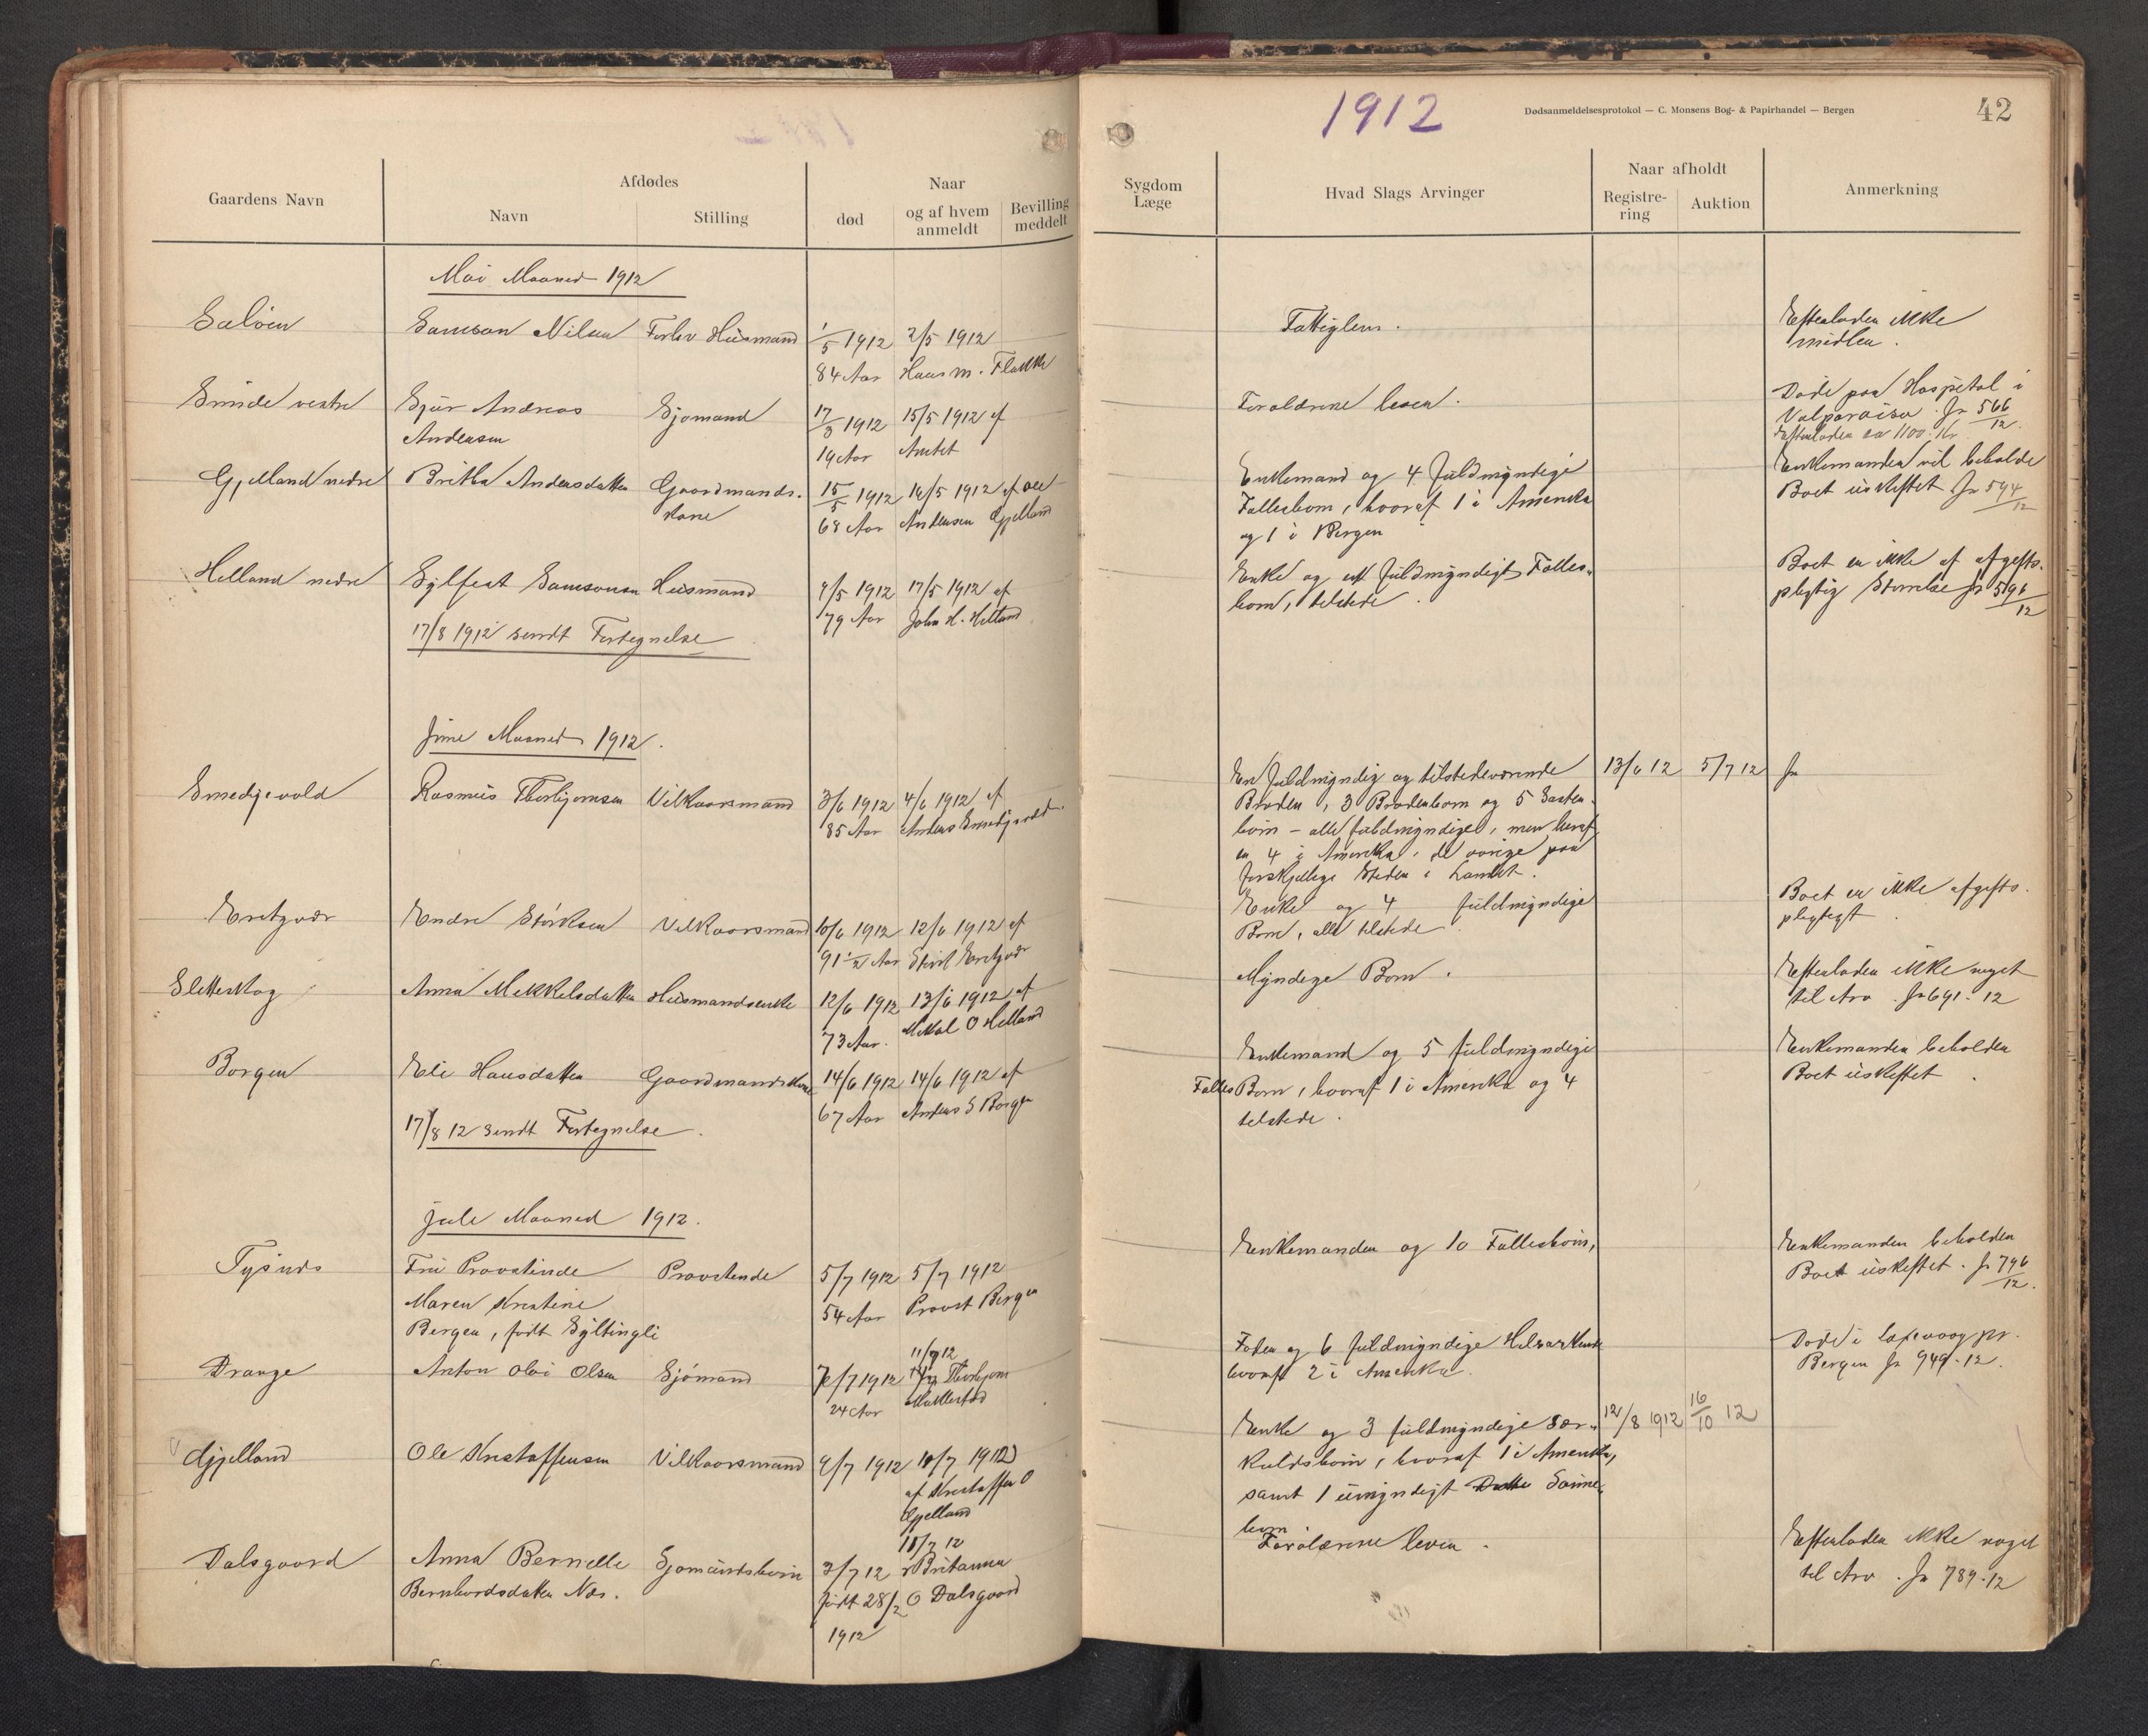 1912
Dødsanmeldelsesprotokol — C. Monsens Bog- & Papirhandel — Bergen
42
Gaardens Navn
Afdødes
Navn
Stilling
Naar
død
og af hvem anmeldt
Bevilling meddelt
Sygdom Læge
Hvad Slags Arvinger
Naar afholdt
Registre-ring
Auktion
Anmerkning
Mai Maaned 1912
Samson Nilsen Forhv Husmand 1/5 1912 2/5 1912 Fattiglem. Efterlader ikke
84 Aar Hans M. Flakke midler.
Sunde vestre Sjur Andreas Sjømand 17/3 1912 15/5 1912 af Forældrene lever. Døde paa Hospital i
Andersen 19 Aar Amtet Valparaiso. Jr 566/12.
Efterlader ca 1100 Kr
Gjelland nedre Britha Andersdatter Gaardmands- 15/5 1912 16/5 1912 af Ole Enkemand og 4 fuldmyndige Enkemanden vil beholde
kone 68 Aar Andersen Gjelland Fællesbørn, hvoraf 1 i Amerika Boet uskiftet Jr 594/12
og 1 i Bergen
Helland nedre Sylfest Samsonsen Husmand 9/5 1912 17/5 1912 af Enke og ett fuldmyndigt Fælles- Boet er ikke af afgifts-
79 Aar John H. Helland barn, tilstede. pligtig Størrelse Jr 596/12
17/8 1912 sendt Fortegnelse
June Maaned 1912.
Smedjevold Rasmus Thorbjørnsen Vilkaarsmand 3/6 1912 4/6 1912 af En fuldmyndig og tilstedeværende 13/6 12 5/7 12 Jr
85 Aar Anders Smedjevold. Broder, 3 Broderbørn og 5 Søster-
børn - alle fuldmyndige, men heraf
er 4 i Amerika, de øvrige paa
forskjellige Steder i Landet.
Endre Størksen Vilkaarsmand 10/6 1912 12/6 1912 af Enke og 4 fuldmyndige Boet er ikke afgifts-
91 1/2 Aar Børn, alle tilstede. pligtigt
Sletteskog Anna Mikkelsdatter Husmandsenke 12/6 1912 13/6 1912 af Myndige Børn. Efterlader ikke noget
73 Aar. Mikal O Helland til Arv. Jr 691-12
Borgen Eli Hansdatter Gaardmandskone 14/6 1912 14/6 1912 af Enkemand og 5 fuldmyndige Enkemanden beholder
67 Aar Anders S Borgen Fælles Børn, hvoraf 1 i Amerika og 4 Boet uskiftet.
tilstede.
17/8 12 sendt Fortegnelse.
Juli Maaned 1912.
Tysnes Fru Provstinde Provstinde 5/7 1912 5/7 1912 Enkemanden og 10 Fællesbørn, Enkemanden beholder
Maren Kristine 54 Aar Provst Bergen Boet uskiftet. Jr 796/12.
Bergen, født
Drange Anton Olai Olsen Sjømand 7/7 1912 11/7 12 Fader og 6 fuldmyndige Helsøskende Døde i Laxevaag pr.
24 Aar Thorbjørn hvoraf 2 i Amerika. Bergen Jr 949-12.
Gjelland Ole Kristoffersen Vilkaarsmand 9/7 1912 10/7 1912 Enke og 3 fuldmyndige Sær- 12/8 1912 16/10 12
af Kristoffer O kuldsbørn, hvoraf 1 i Amerika,
Gjelland samt 1 umyndigt
barn.
Dalsgaard Anna Bernelle Sjømandsbarn 3/7 12 18/7 12 Forældrene lever. Efterlader ikke noget
Bernhardsdatter Næs. født 28/2 Britanna til Arv. Jr 789-12
1912 O Dalsgaard